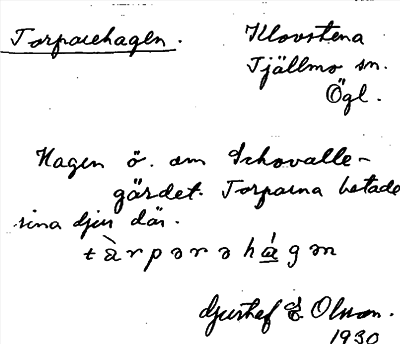 Torparehagen.
Klovstena
Tjällmo sn.
Ögl.
Hagen ö. om Schovalle-
gärdet. Torparna betade
sina djur där.
tàrpərəhá̱gən
Gustaf E Olsson.
1930